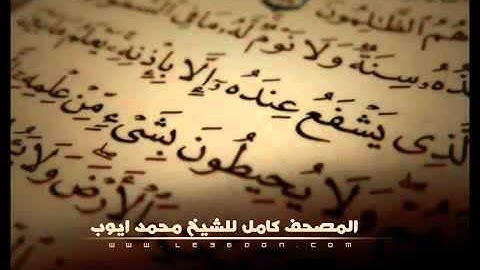 هُمُ الظَّالِمُونَ
سِنَةٌ وَلَا نَوْمٌ لَهُ مَا فِي السَّمَ
الَّذِي يَشْفَعُ عِنْدَهُ إِلَّا بِإِذْنِهِ يَعْلَمُ مَا
وَلَا يُحِيطُونَ بِشَيْءٍ مِنْ عِلْمِهِ
الْأَرْضَ وَلَا
المصحف كامل للشيخ محمد ايوب
www.le3bdon.com